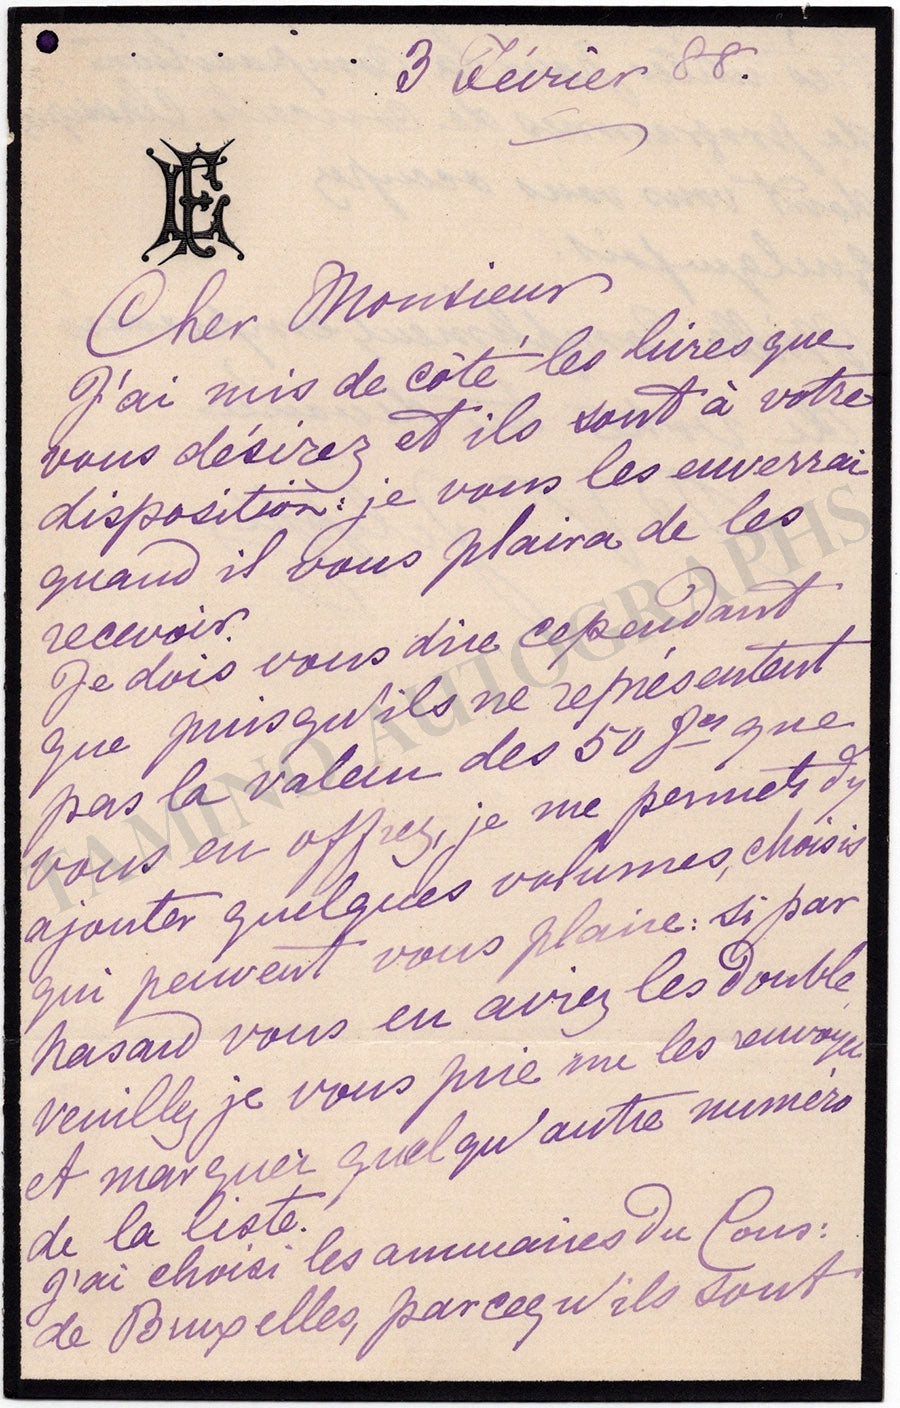 3 Février 88.
FE
Cher Monsieur
J'ai mis de côté les livres que
vous désirez et ils sont à votre
disposition: je vous les enverrai
quand il vous plaira de les
recevoir.
Je dois vous dire cependant
que puisqu'ils ne représentent
pas la valeur des 50 frs que
vous en offrez, je me permets d'y
ajouter quelques volumes, choisis
qui peuvent vous plaire: si par
hasard vous en aviez les double
veuillez je vous prie me les renvoyer
et marquer quelqu'autre numéro
de la liste.
J'ai choisi les annuaires du Cons:
de Bruxelles, parcequ'ils sont
TAMINO AUTOGRAPHS